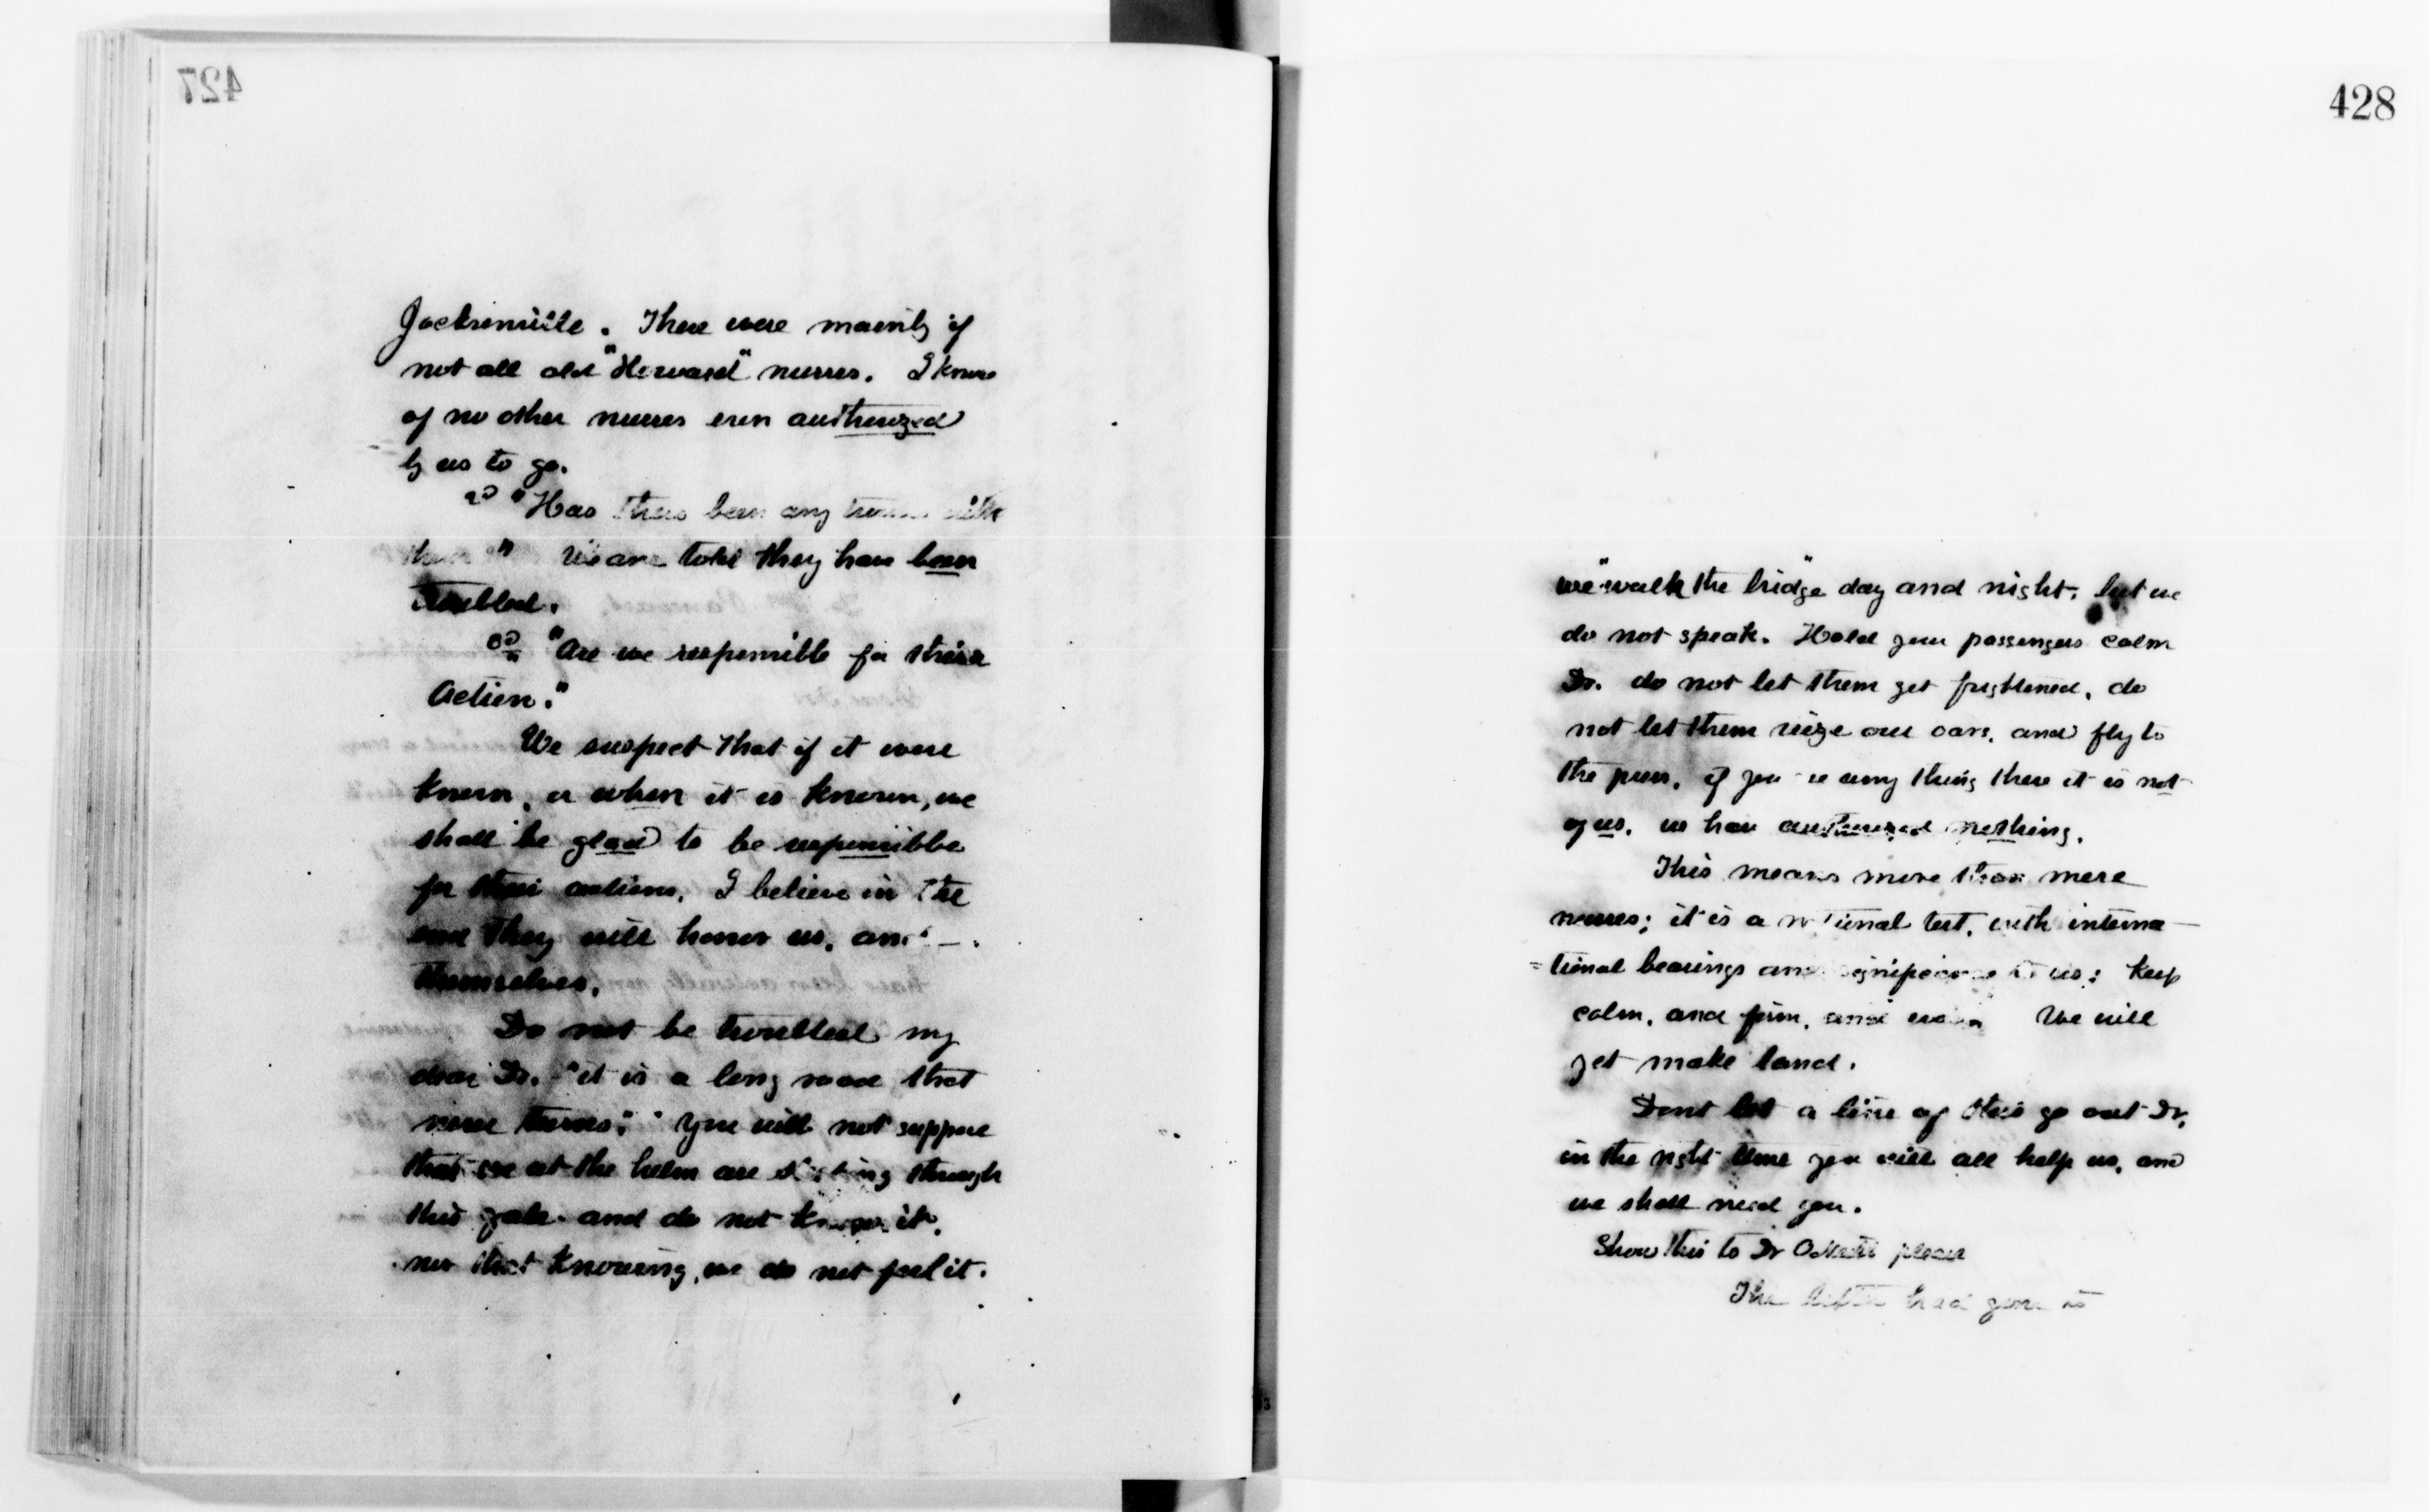 427
Jacksonville. These were mainly if
not all old "Howard" nurses. I know
of no other nurses even authorized
by us to go.
2d "Has there been any trouble with
them" We are told they have been
troubled.
3d "Are we responsible for their
Action."
We suspect that if it were
known, or when it is known, we
shall be glad to be responsible
for their actions. I believe in the
end they will honor us, and
themselves.
Do not be troubled my
dear Dr. "it is a long road that
never turns." You will not suppose
that we at the helm are through
this gale and do not know it,
nor that knowing, we do not feel it.
428
we "walk the bridge" day and night, but we
do not speak. Hold your passengers calm
Dr. do not let them get frightened, do
not let them seize our oars, and fly to
the press, if you see any thing there it is not
of us. we have authorized nothing.
This means more than mere
nurses; it is a national test, with interna-
=tional bearings and significance to us: Keep
calm, and firm, and We will
yet make land.
Dont let a line of this go out Dr.
in the right time you will all help us, and
we shall need you.
Show this to Dr please
The letter had gone to